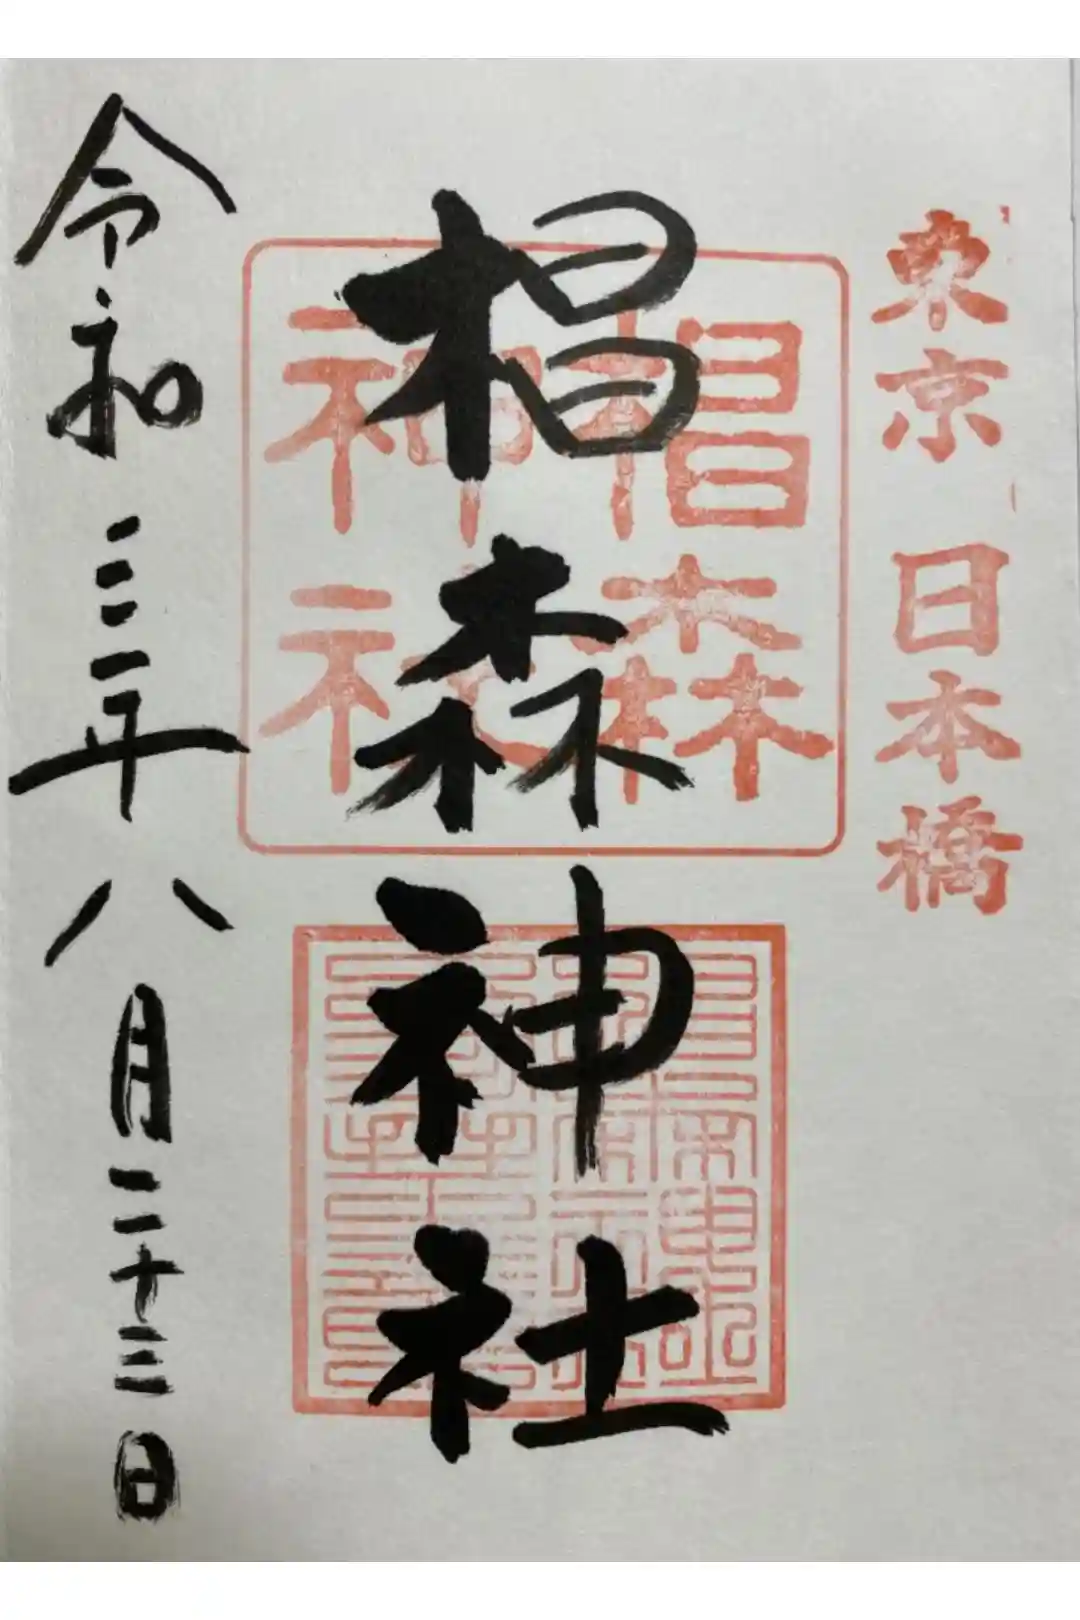 東京 日本橋
椙森神社
椙森
神社
令和三年八月二十三日